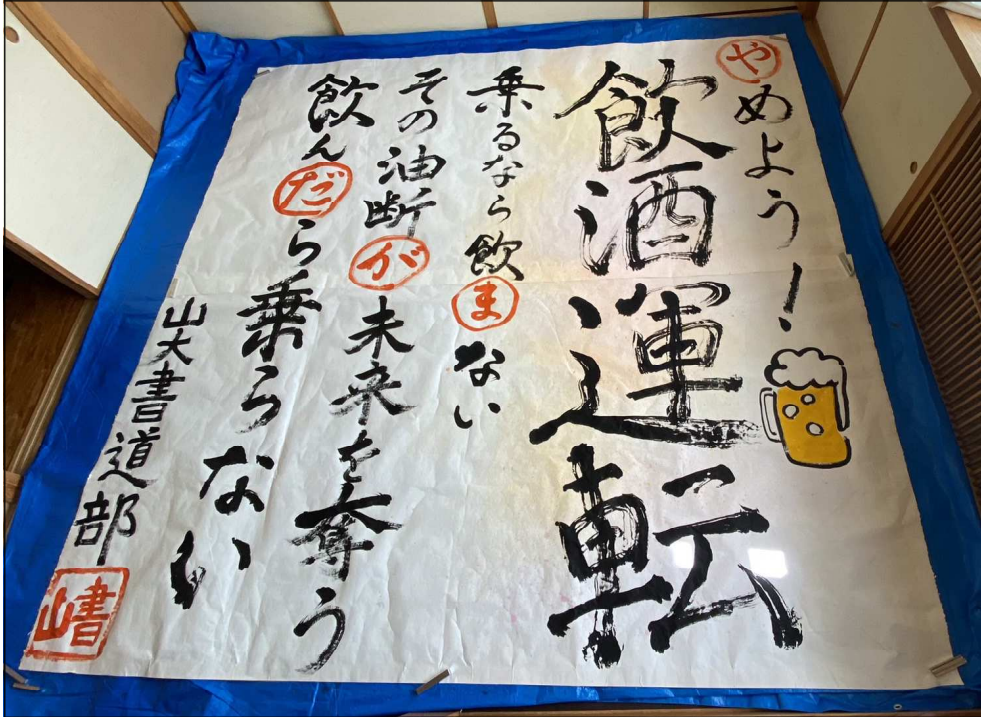 やめよう！
飲酒運転
乗るなら飲まない
その油断が未来を奪う
飲んだら乗らない
山大書道部
山書